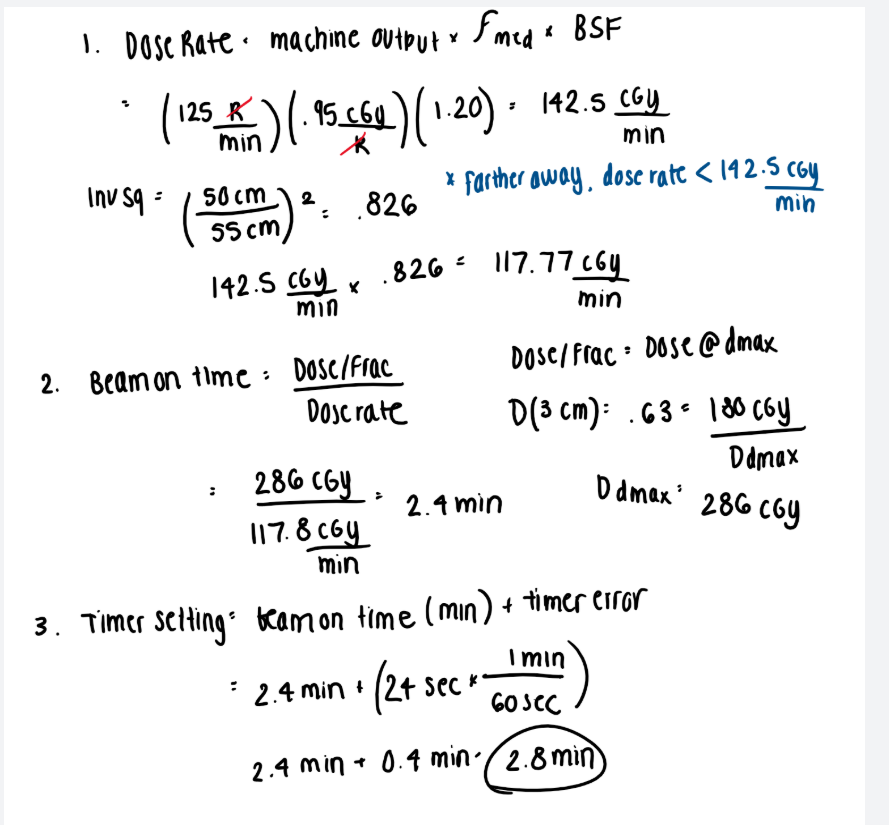 1. Dose Rate = machine output × fmed × BSF
= (125 R/min)(.95 cGy/R)(1.20) = 142.5 cGy/min
* farther away, dose rate < 142.5 cGy/min
Inv sq = (50 cm/55 cm)² = .826
142.5 cGy/min × .826 = 117.77 cGy/min
2. Beam on time = Dose/Frac / Dose rate
Dose/Frac = Dose @ dmax
D(3 cm) = .63 = 180 cGy / D dmax
D dmax = 286 cGy
= 286 cGy / 117.8 cGy/min = 2.4 min
3. Timer setting = beam on time (min) + timer error
= 2.4 min + (24 sec × 1 min/60 sec)
2.4 min + 0.4 min = 2.8 min